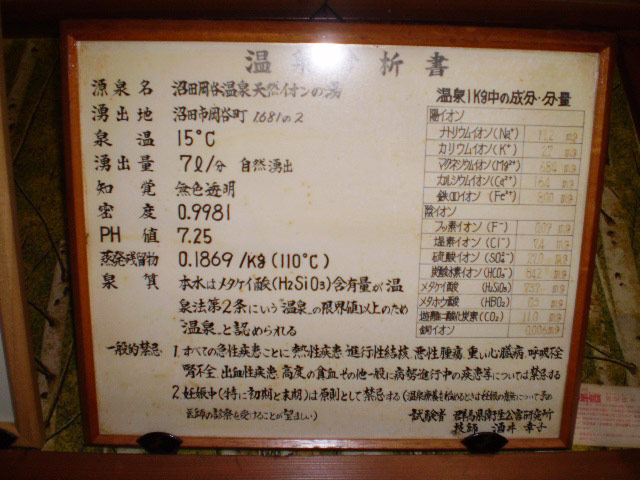 温泉分析書
源泉名 沼田岡谷温泉天然イオンの湯
湧出地 沼田市岡谷町 1681の2
泉温 15°C
湧出量 7ℓ/分 自然湧出
知覚 無色透明
密度 0.9981
PH値 7.25
蒸発残留物 0.1869/kg(110°C)
泉質 本水はメタケイ酸(H₂SiO₃)含有量が温
泉法第2条にいう"温泉"の限界値以上のため
"温泉"と認められる
温泉1kg中の成分・分量
陽イオン
ナトリウムイオン(Na⁺) mg
カリウムイオン(K⁺) mg
マグネシウムイオン(Mg²⁺) mg
カルシウムイオン(Ca²⁺) mg
鉄(II)イオン(Fe²⁺) mg
陰イオン
フッ素イオン(F⁻) mg
塩素イオン(Cl⁻) mg
硫酸イオン(SO₄²⁻) mg
炭酸水素イオン(HCO₃⁻) mg
メタケイ酸(H₂SiO₃) mg
メタホウ酸(HBO₂) mg
遊離二酸化炭素(CO₂) 11.0 mg
銅イオン 0.006 mg
一般的禁忌 1.すべての急性疾患ことに熱性疾患・進行性結核、悪性腫瘍、重い心臓病、呼吸不全
腎不全、出血性疾患、高度の貧血、その他一般に病勢進行中の疾患等については禁忌する
2.妊娠中(特に初期と末期)は原則として禁忌する(温泉療養を始めるときは妊娠の
医師の診察を受けることが望ましい)
試験者 群馬県衛生公害研究所
技師 酒井幸子